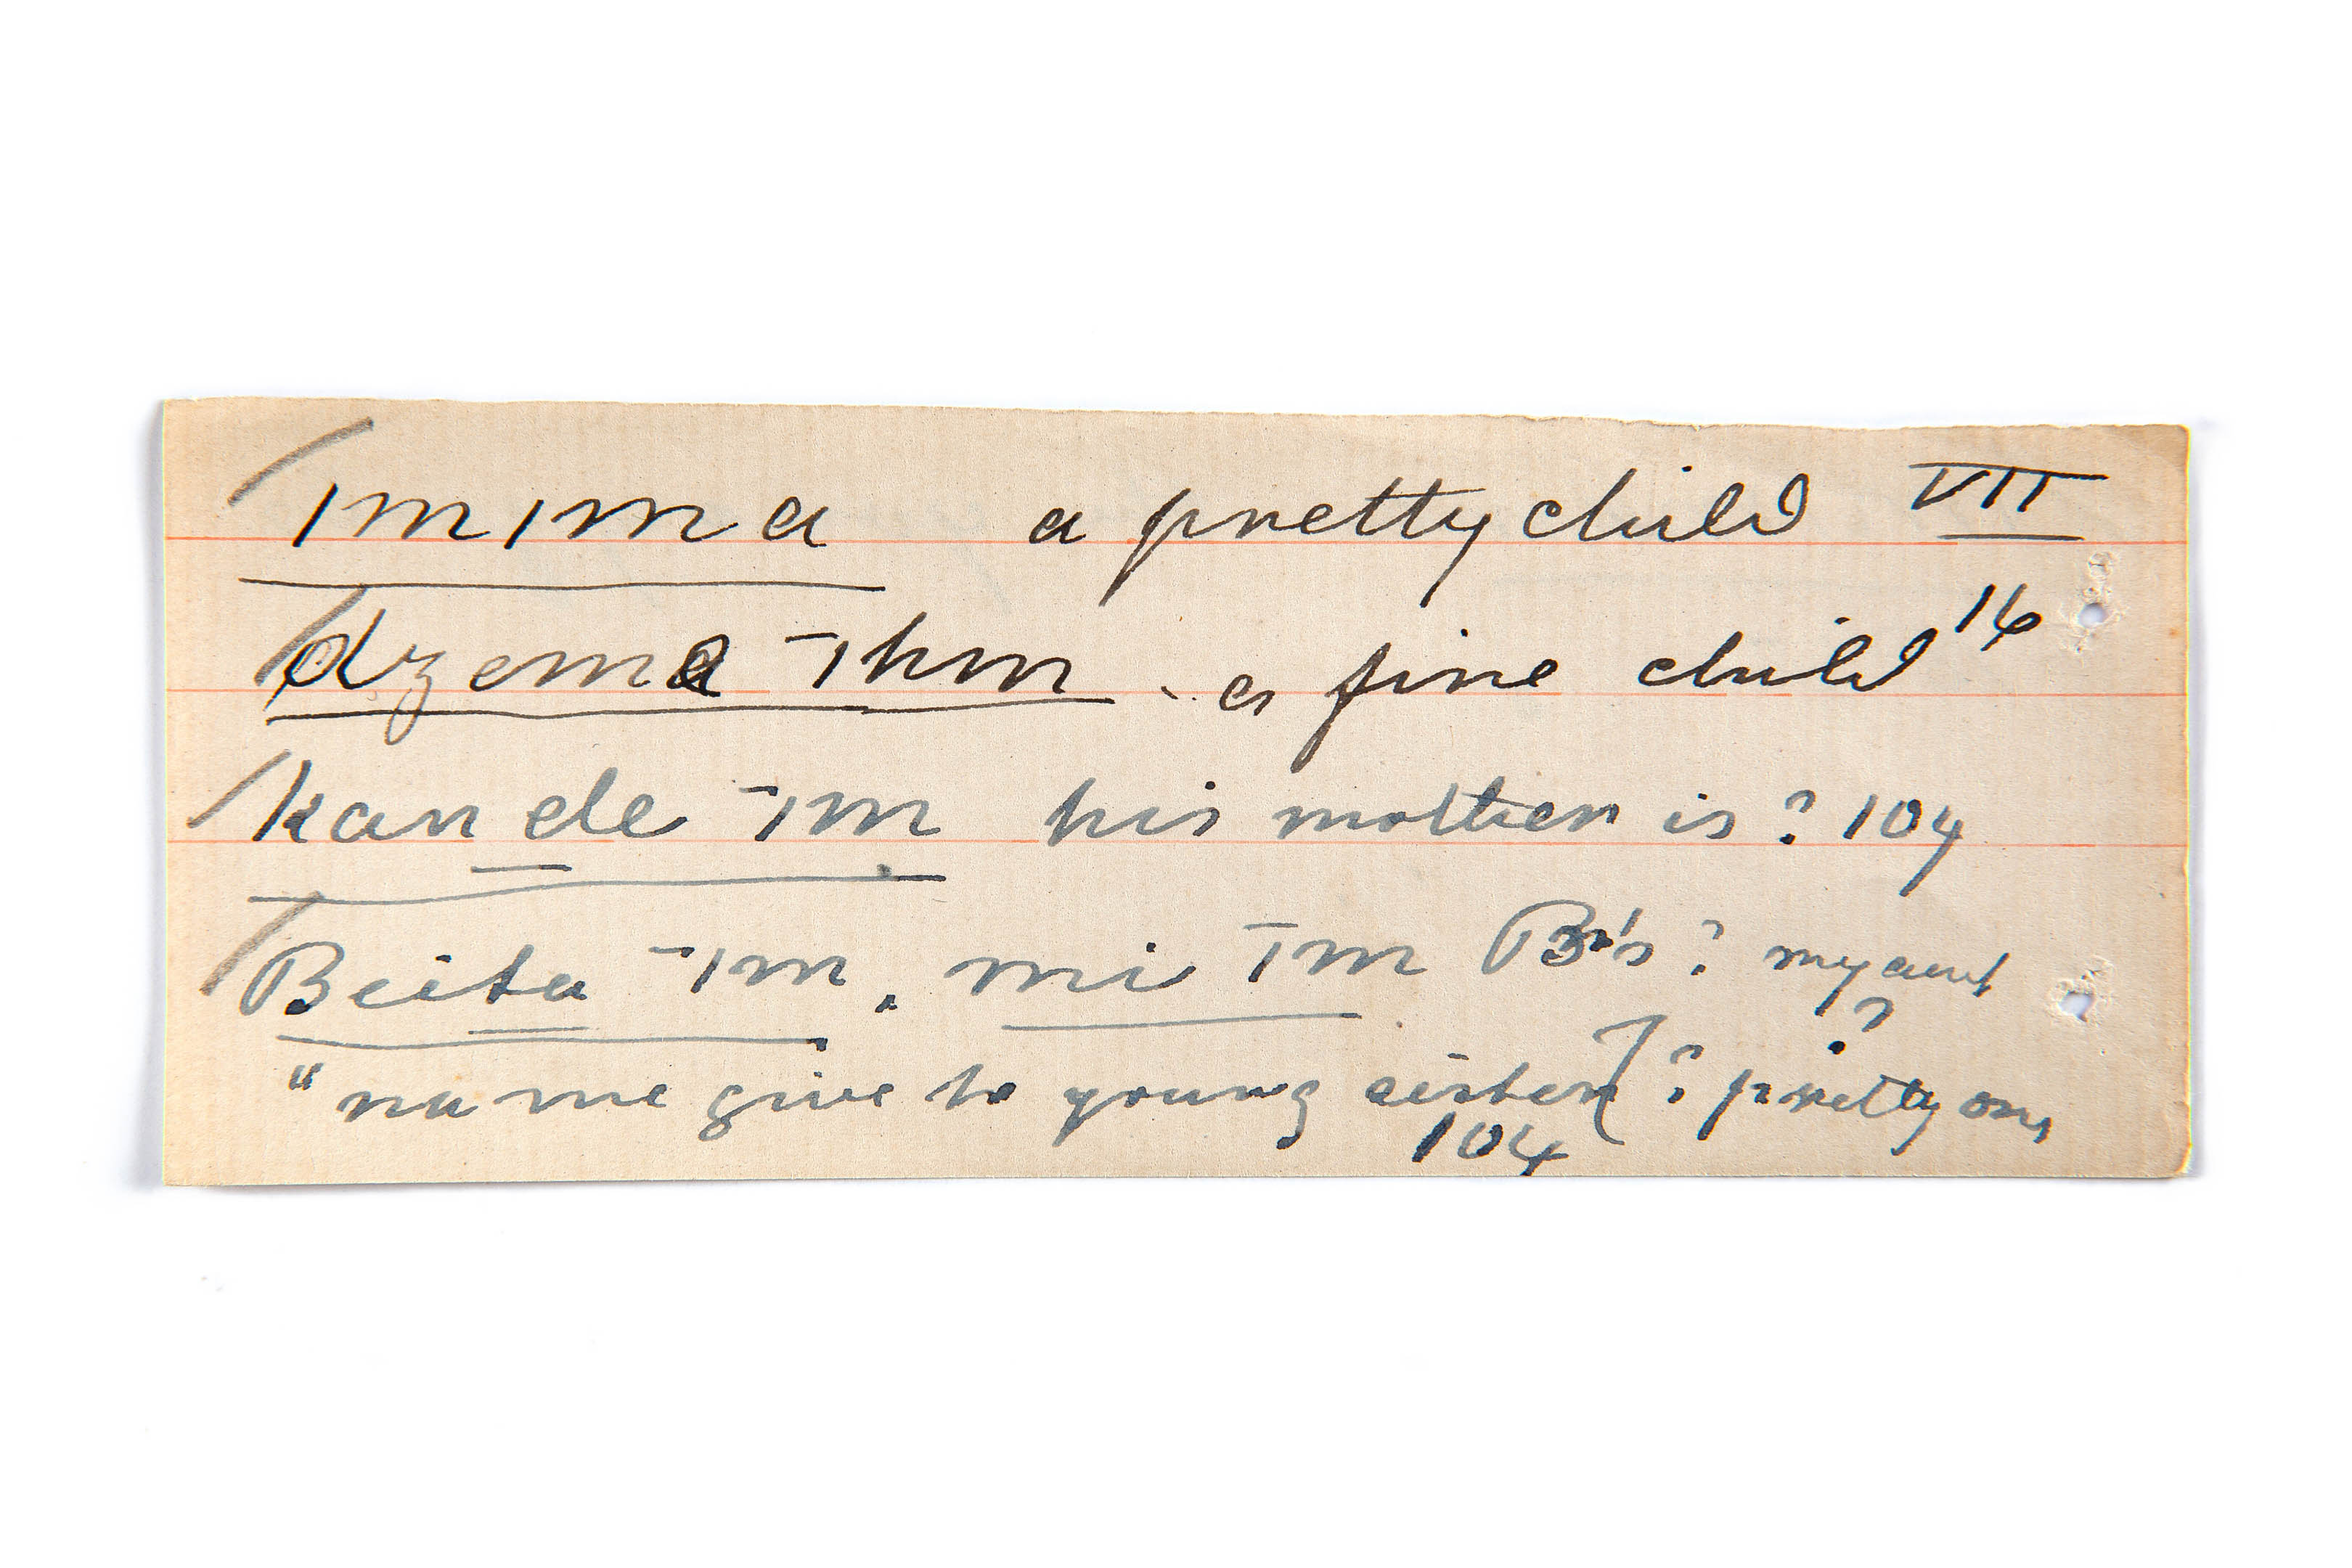 imima a pretty child VII
dzema ihm - a fine child 16
kande im his mother is? 104
Beita im, mi im B's? my aunt ?
" name give to young sister? ? pretty one,
104